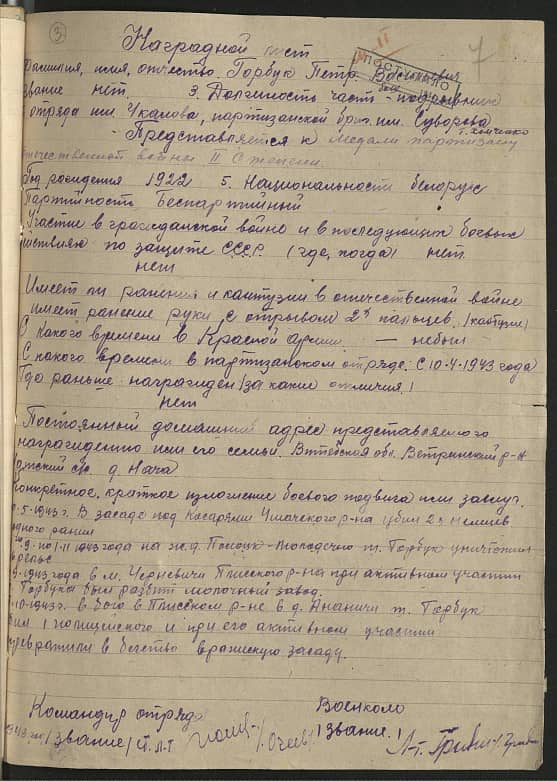 3
II
7
Наградной лист
Фамилия, имя, отчество. Горбук Петр Васильевич
звание нет. 3. Должность часть - подрывник
отряда им. Чкалова, партизанской бриг. им. Суворова
Представляется к медали партизану
Отечественной войны II Степени.
Год рождения 1922 5. Национальность белорус
Партийность Беспартийный
Участие в гражданской войне и в последующих боевых
действиях по защите СССР (где, когда) нет
нет
Имеет ли ранения и кантузии в отечественной войне
имеет ранение руки, с отрывом 2х пальцев,
С какого времени в Красной армии — небыл
С какого времени в партизанском отряде. С 10-4-1943 года
Где раньше награжден за какие отличия!
нет
Постоянный домашний адрес представляемого
награждению или его семьи. Витебская обл. Ветринский р-н
с/с д. Нача
конкретное, краткое изложение боевого подвига или заслуг.
-5-1943 г. В засаде под Косарями Ушачского р-на убил 2х немцев
одного ранил
9. по 1-11 1943 года на ж.д. Полоцк-Молодечно т. Горбук уничтожил
рельс
9-1943 года в м. Черневичи Плисского р-на при активном участии
Горбука был разбит молочный завод.
10-1943 г. в бою в Плисском р-не в д. Ананичи т. Горбук
1 полицейского и при его активном участии
превратили в бегство вражескую засаду.
Командир отряда Военком
/звание/ ст. л-т /звание!
Л-т.